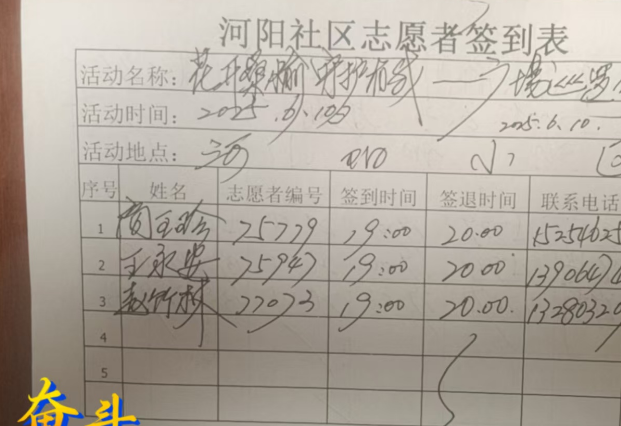 河阳社区志愿者签到表
活动名称：花开桑榆 守护有我 一
活动时间：2025.6.10日 2025.6.10.
活动地点：河 阳 小 区
序号 姓名 志愿者编号 签到时间 签退时间 联系电话
1 75779 19:00 20.00 15254625
2 王永安 75947 19:00 20.00 13906474
3 赵竹林 77073 19:00 20.00. 13280320
4
5
奋斗